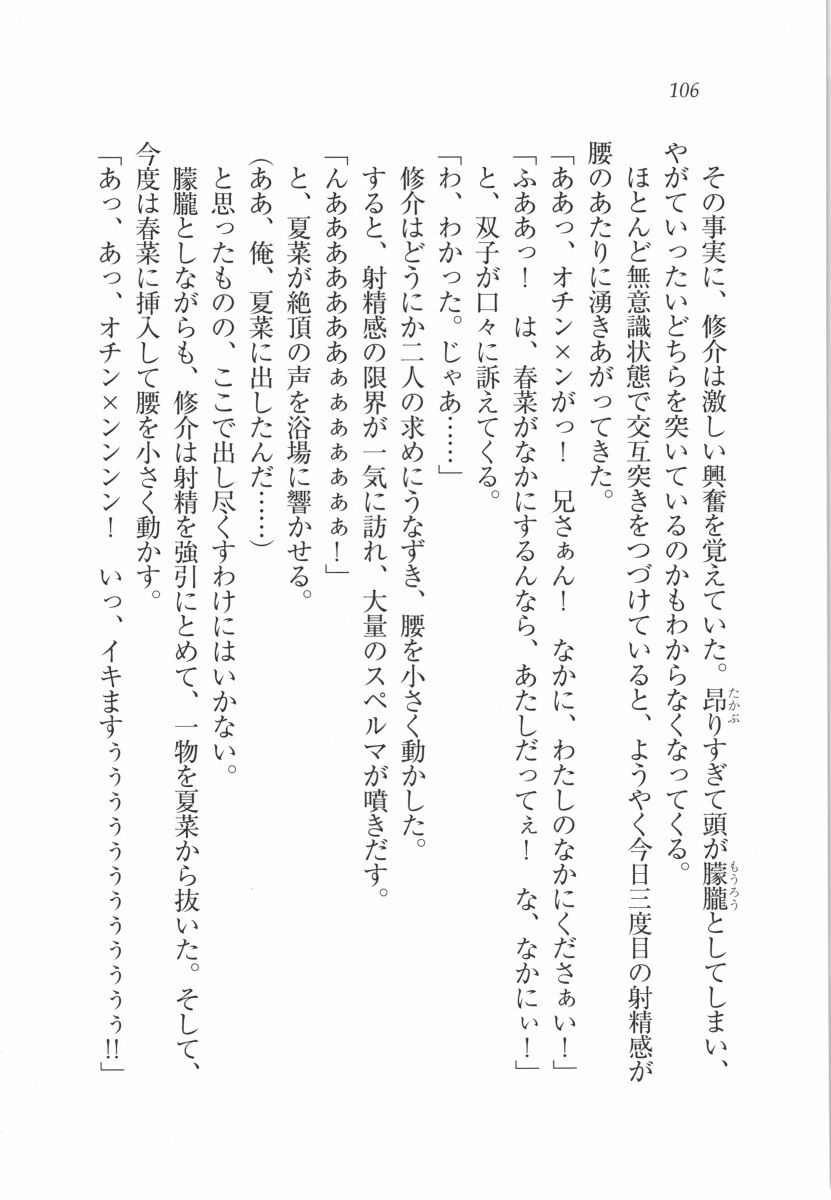 106
その事実に、修介は激しい興奮を覚えていた。昂りすぎて頭が朦朧としてしまい、
やがていったいどちらを突いているのかもわからなくなってくる。
ほとんど無意識状態で交互突きをつづけていると、ようやく今日三度目の射精感が
腰のあたりに湧きあがってきた。
「ああっ、オチン×ンがっ！　兄さぁん！　なかに、わたしのなかにくださぁい！」
「ふああっ！　は、春菜がなかにするんなら、あたしだってぇ！　な、なかにぃ！」
と、双子が口々に訴えてくる。
「わ、わかった。じゃあ……」
修介はどうにか二人の求めにうなずき、腰を小さく動かした。
すると、射精感の限界が一気に訪れ、大量のスペルマが噴きだす。
「んああああああああぁぁぁぁぁぁぁ！」
と、夏菜が絶頂の声を浴場に響かせる。
（ああ、俺、夏菜に出したんだ……）
と思ったものの、ここで出し尽くすわけにはいかない。
朦朧としながらも、修介は射精を強引にとめて、一物を夏菜から抜いた。そして、
今度は春菜に挿入して腰を小さく動かす。
「あっ、あっ、オチン×ンンンン！　いっ、イキますぅぅぅぅぅぅぅぅぅぅぅぅ!!」